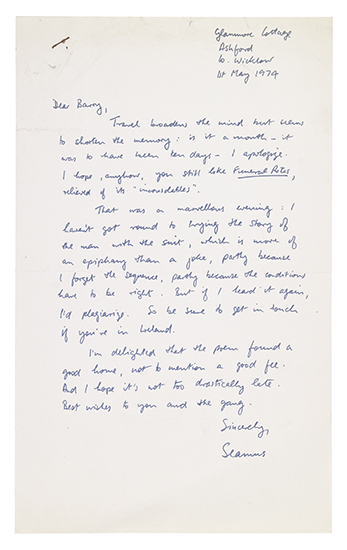 Glanmore Cottage
Ashford
Co. Wicklow
1st May 1974
Dear Barry,
Travel broadens the mind but seems
to shorten the memory: is it a month - it
was to have been ten days - I apologize.
I hope, anyhow, you still like Funeral Rites,
relieved of its "inconsolables".
That was a marvellous evening: I
haven't got round to trying the story of
the man with the suit, which is more of
an epiphany than a joke, partly because
I forget the sequence, partly because the conditions
have to be right. But if I heard it again,
I'd plagiarize. So be sure to get in touch
if you're in Ireland.
I'm delighted that the poem found a
good home, not to mention a good fee.
And I hope it's not too drastically late.
Best wishes to you and the gang.
Sincerely,
Seamus